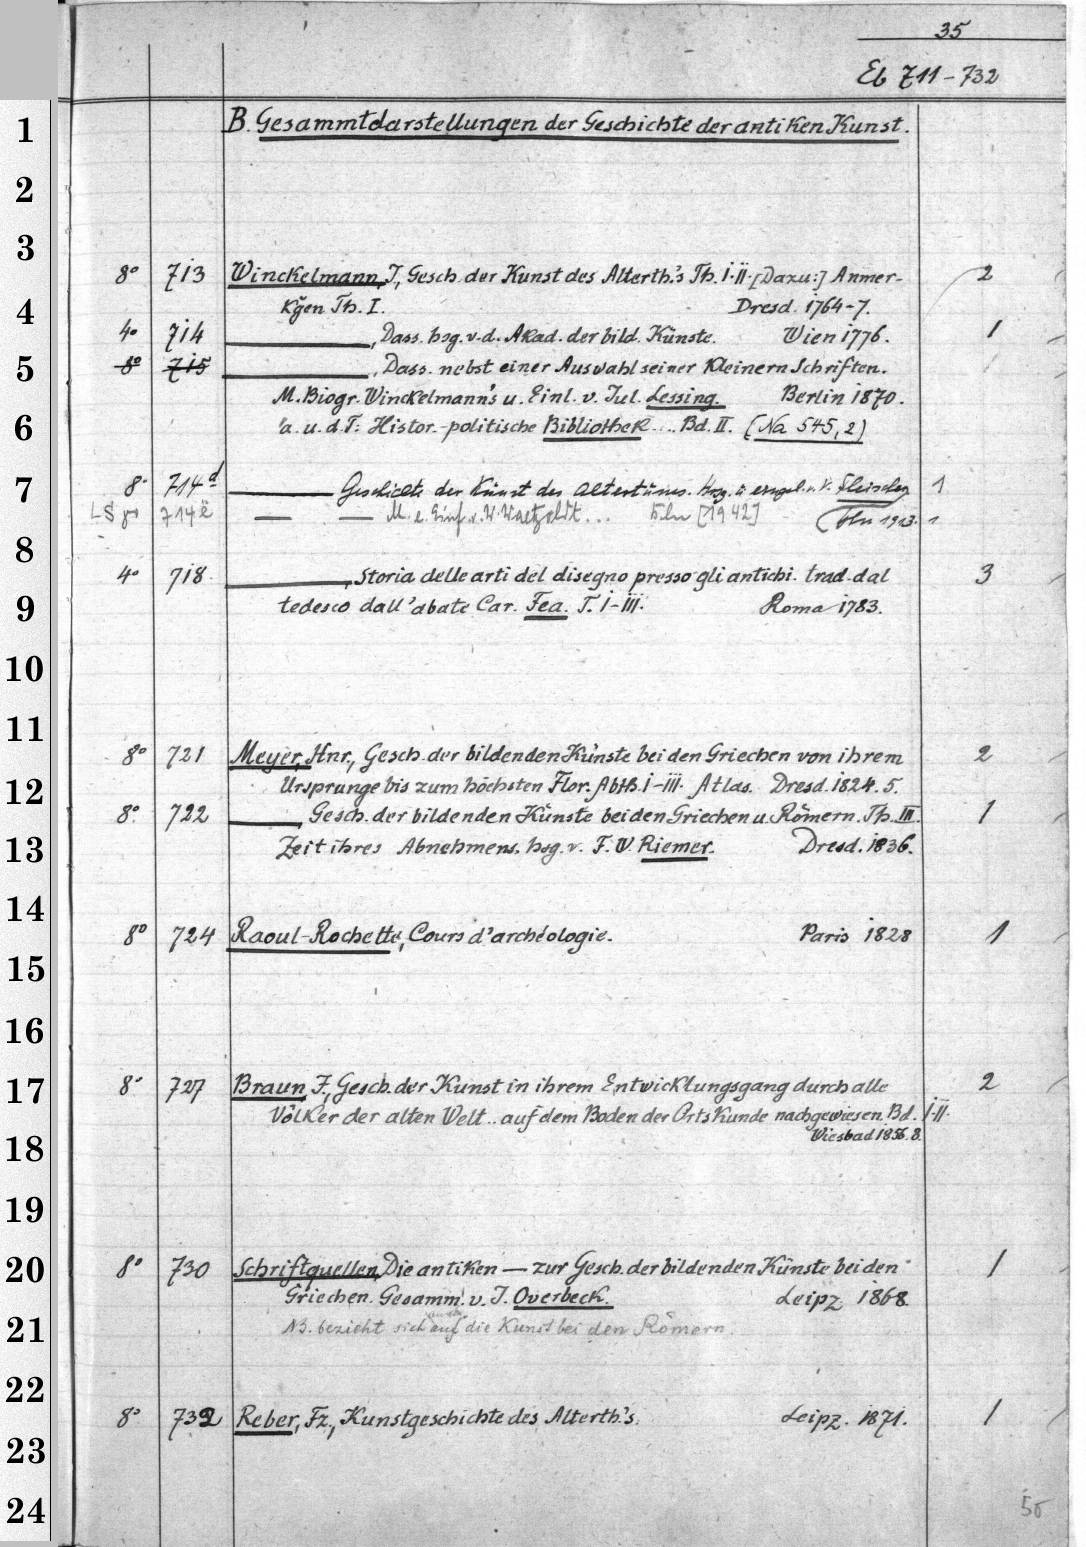 35
Eb 711-732
1
B. Gesammtdarstellungen der Geschichte der antiken Kunst.
2
3
8° 713 Winckelmann, J., Gesch. der Kunst des Alterth.'s Th. I-II. [Dazu:] Anmer- 2
kgen Th. I. Dresd. 1764-7.
4
4° 714 ———, Dass. hsg. v. d. Akad. der bild. Künste. Wien 1776. 1
5
8° 715 ———, Dass. nebst einer Auswahl seiner kleinern Schriften. 1
M. Biogr. Winckelmann's u. Einl. v. Jul. Lessing. Berlin 1870.
6
a. u. d. T: Histor.-politische Bibliothek.... Bd. II. (Na 545, 2)
7
8° 714d ——— Geschichte der Kunst des Altertums. hrsg. v. Fleischer 1
714e — — M. e. Einf. v. W. Waetzoldt... Köln [1942] Bln 1913. 1
8
4° 718 ———, Storia delle arti del disegno presso gli antichi. trad. dal 3
9
tedesco dall'abate Car. Fea. T. I-III. Roma 1783.
10
11
8° 721 Meyer, Hnr., Gesch. der bildenden Künste bei den Griechen von ihrem 2
12
Ursprunge bis zum höchsten Flor. Abth. I-III. Atlas. Dresd. 1824. 5.
8° 722 ——— Gesch. der bildenden Künste bei den Griechen u. Römern. Th. III. 1
13
Zeit ihres Abnehmens. hsg. v. F. W. Riemer. Dresd. 1836.
14
8° 724 Raoul-Rochette, Cours d'archéologie. Paris 1828 1
15
16
17
8° 727 Braun, J., Gesch. der Kunst in ihrem Entwicklungsgang durch alle 2
Völker der alten Welt .. auf dem Boden der Ortskunde nachgewiesen. Bd. I-II.
Wiesbad 1856. 8.
18
19
20
8° 730 Schriftquellen, Die antiken — zur Gesch. der bildenden Künste bei den 1
Griechen. Gesamm. v. J. Overbeck. Leipz 1868.
21
NB. bezieht sich auch auf die Kunst bei den Römern
22
8° 732 Reber, Fz., Kunstgeschichte des Alterth.'s. Leipz. 1871. 1
23
24
50